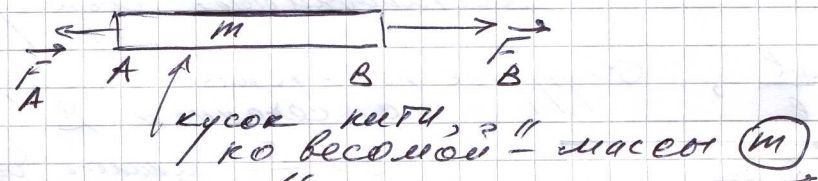 m
F A A B F B
кусок нити,
но весомой" – массы m